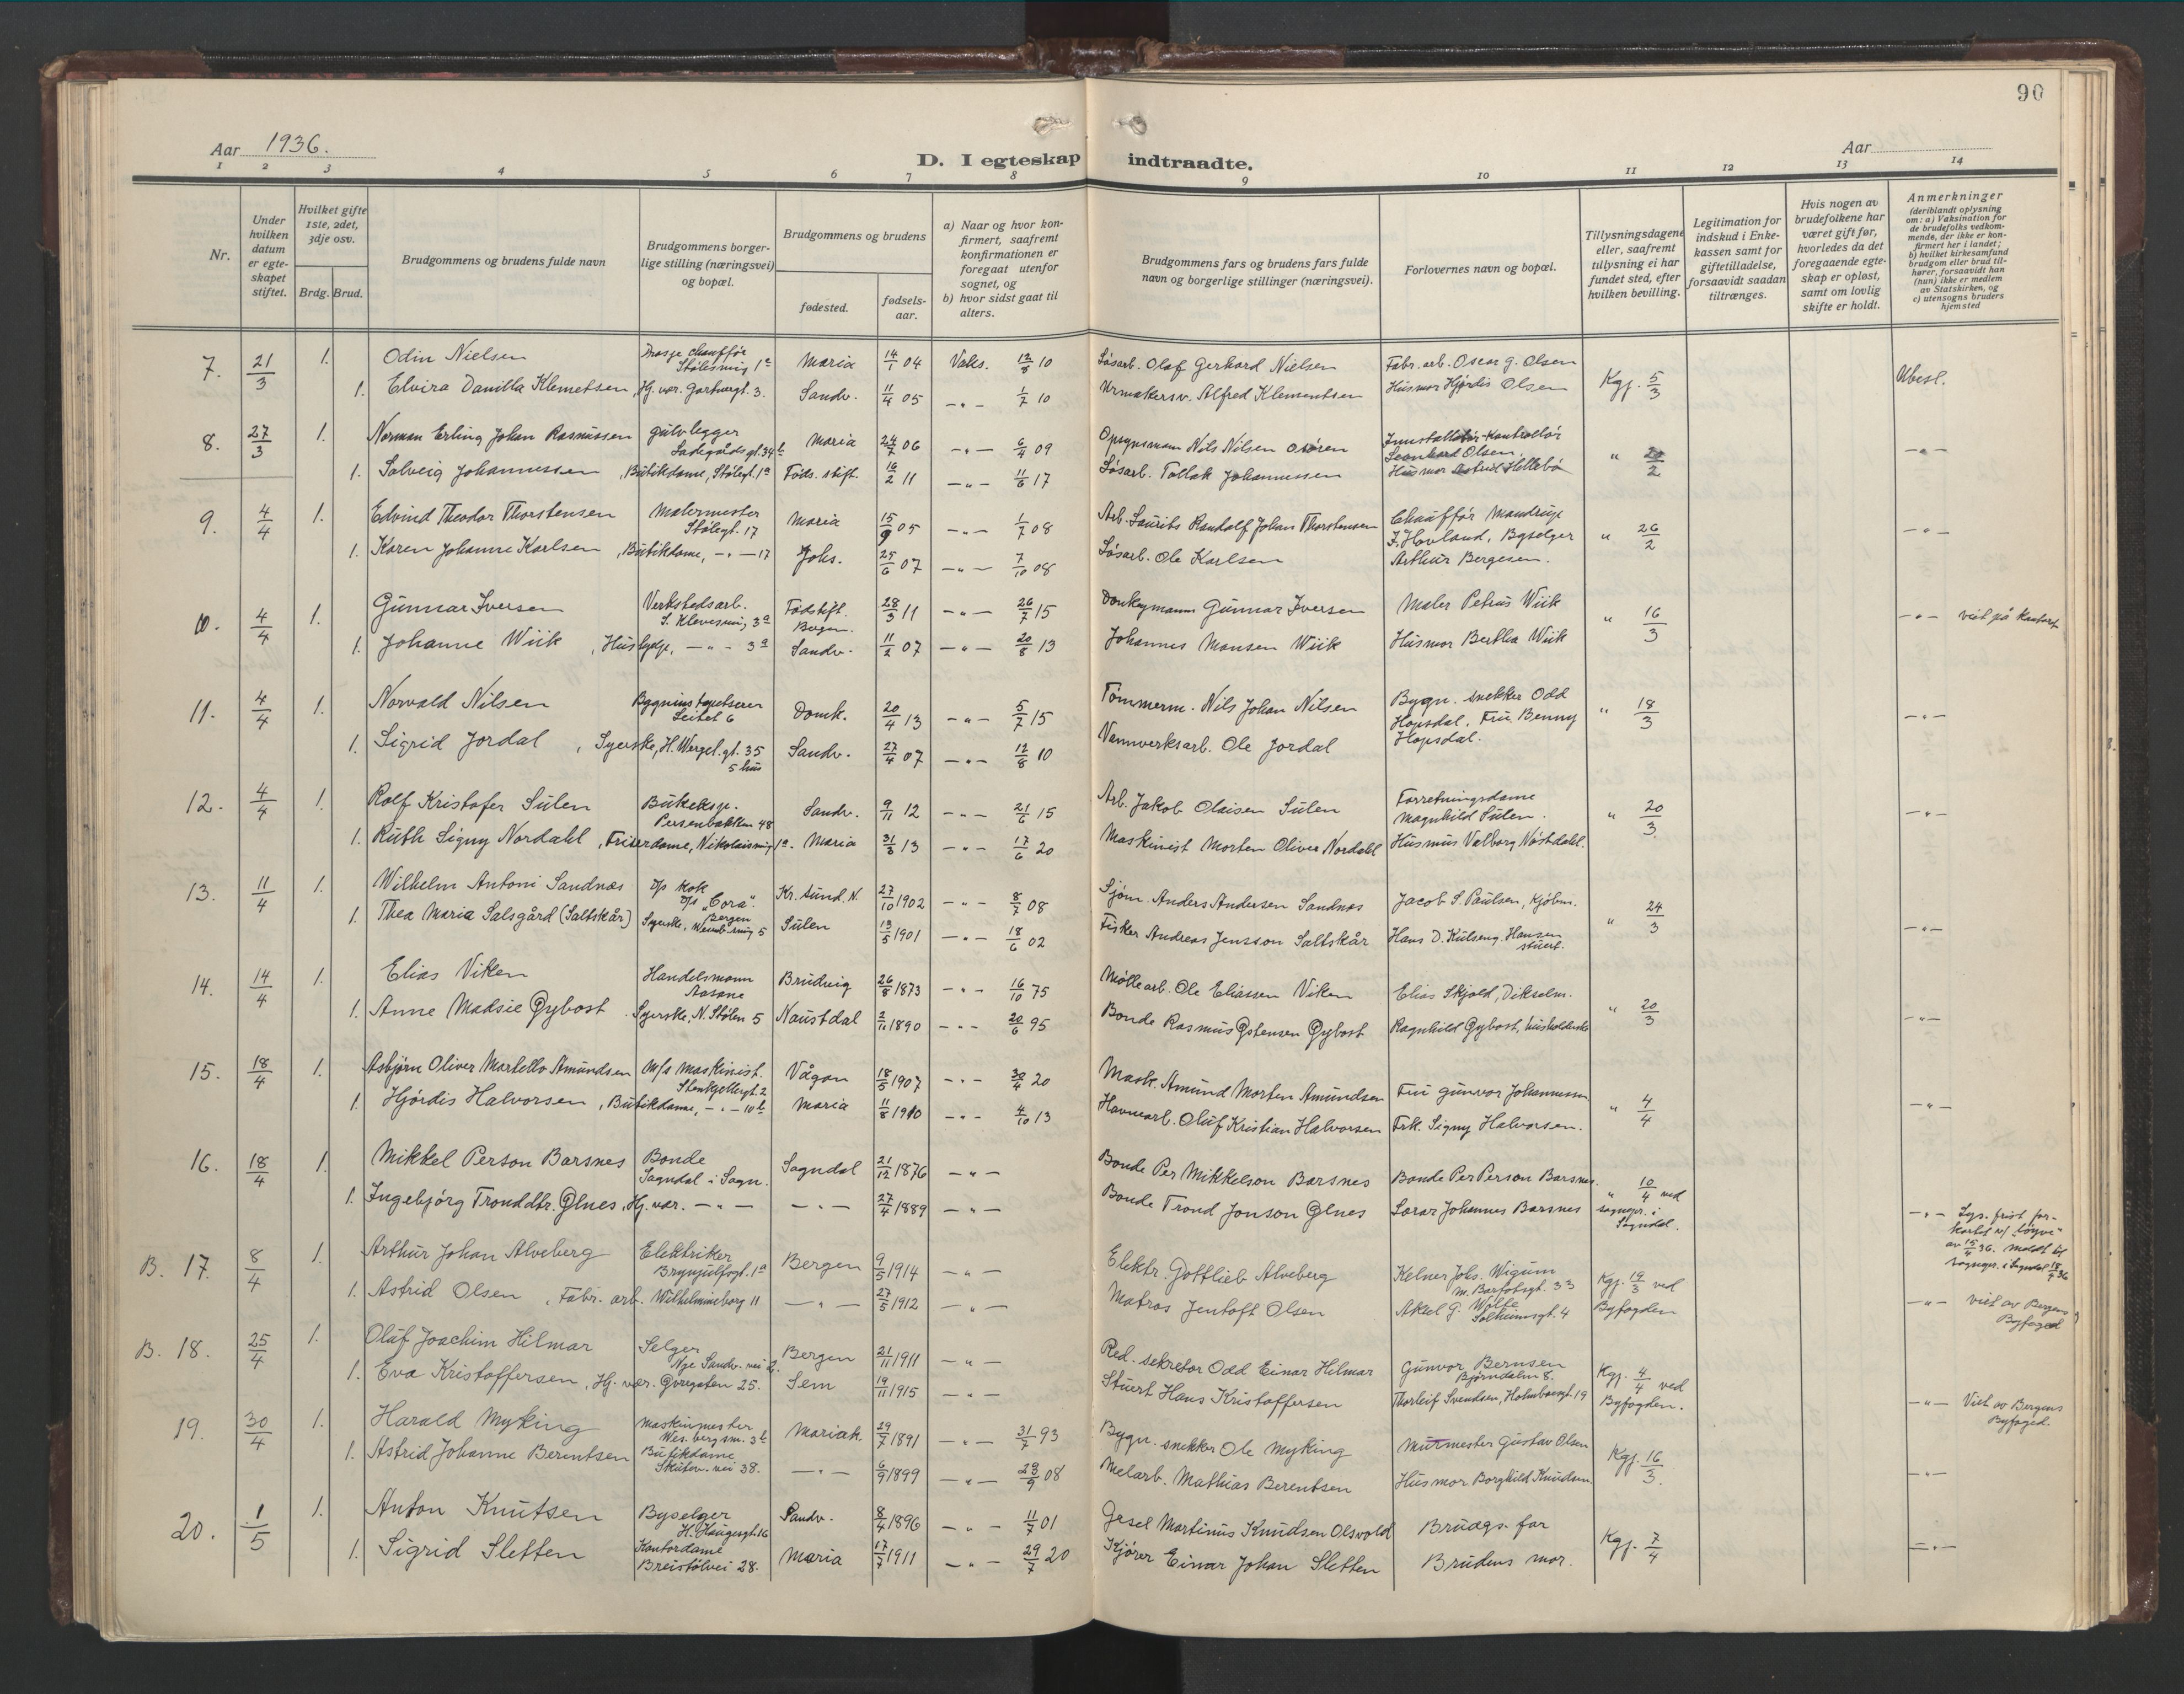 90
Aar 1936.
D. I egteskap indtraadte.
Aar
1 2 3 4 5 6 7 8 9 10 11 12 13 14
Nr.
Under hvilken datum er egteskapet stiftet.
Hvilket gifte 1ste, 2det, 3dje osv.
Brdg. Brud.
Brudgommens og brudens fulde navn
Brudgommens borgerlige stilling (næringsvei) og bopæl.
Brudgommens og brudens
fødested.
fødselsaar.
a) Naar og hvor konfirmert, saafremt konfirmationen er foregaat utenfor sognet, og
b) hvor sidst gaat til alters.
Brudgommens fars og brudens fars fulde navn og borgerlige stillinger (næringsvei).
Forlovernes navn og bopæl.
Tillysningsdagene eller, saafremt tillysning ei har fundet sted, efter hvilken bevilling.
Legitimation for indskud i Enkekassen samt for giftetilladelse, forsaavidt saadan tiltrænges.
Hvis nogen av brudefolkene har været gift før, hvorledes da det foregaaende egteskap er opløst, samt om lovlig skifte er holdt.
Anmerkninger (deriblandt oplysning om: a) Vaksination for de brudefolks vedkommende, der ikke er konfirmert her i landet; b) hvilket kirkesamfund brudgom eller brud tilhører, forsaavidt han (hun) ikke er medlem av Statskirken, og c) utensogns bruders hjemsted
7. 21/3 1. Odin Nielsen Drosje chauffør Stølesmug 1a Maria 14/1 04 Vaks. 12/8 10 Løsarb. Olaf Gerhard Nielsen Fabr. arb. Oscar G. Olsen Kgj. 5/3 Ubesl.
1. Elvira Danilla Klemetsen, Hj. vær. Gartnergt. 3. Sandv. 11/4 05 -"- 1/7 10 Urmakersv. Alfred Klementsen Husmor Hjørdis Olsen
8. 27/3 1. Norman Erling Johan Rasmussen gulvlegger Ladegårdsgt. 34b Maria 24/7 06 -"- 6/4 09 Opsynsmann Nils Nilsen Innstallatør-Kontrollør Leonhard Olsen, " 20/2 -"-
1. Solveig Johannessen, Butikdame, Stølegt. 1a Føds. stift. 16/2 11 -"- 11/6 17 Løsarb. Tollak Johannessen Husmor Astrid Hillebø
9. 4/4 1. Edvind Theodor Thorstensen Malermester Stølegt. 17 Maria 15/9 05 -"- 1/7 08 Arb. Laurits Randolf Johan Thorstensen Chauffør Mandrup F. Hovland, Byselger " 26/2 -"-
1. Karen Johanne Karlsen, Butikdame, -"- 17 Johs. 25/6 07 -"- 7/10 08 Løsarb. Ole Karlsen Arthur Bergesen.
10. 4/4 1. Gunnar Iversen Verkstedsarb. S. Klevesmug 3a Fødstift. Bergen. 28/3 11 -"- 26/7 15 Donkeymann Gunnar Iversen Maler Petrus Wiik " 16/3 -"- viet på kontoret
1. Johanne Wiik, Hushjelp, -"- 3a Sandv. 11/2 07 -"- 20/8 13 Johannes Monsen Wiik Husmor Bertha Wiik
11. 4/4 1. Norvald Nilsen Bygningstapetserer Leitet 6 Domk. 20/4 13 -"- 5/7 15 Tømmerm. Nils Johan Nilsen Bygn. snekker Odd Hopsdal, Fru Benny Hopsdal. " 18/3 -"-
1. Sigrid Jordal, Syerske, H. Wergel. gt. 35 5 hus Sandv. 27/4 07 -"- 12/8 10 Vannverksarb. Ole Jordal
12. 4/4 1. Rolf Kristofer Sulen Butikeksp. Persenbakken 48 Sandv. 9/11 12 -"- 21/6 15 Arb. Jakob Olaisen Sulen Forretningsdame Magnhild Sulen. " 20/3 -"-
1. Ruth Signy Nordahl, Friserdame, Nikolaismug 1a. Maria 31/3 13 -"- 17/6 20 Maskinist Morten Oliver Nordahl Husmus Valborg Nøstdahl.
13. 11/4 1. Wilhelm Antoni Sandnes d/s kok d/s "Cora". Bergen Kr. sund. N. 27/10 1902 -"- 8/7 08 Sjøm. Anders Andersen Sandnes Jacob S. Paulsen, Kjøbm. " 24/3 -"-
1. Thea Maria Salsgård (Saltskår) Syerske, smug 5 Sulen 13/5 1901 -"- 18/6 02 Fisker Andreas Jensson Saltskår Hans D. Kulseng Hansen stuert.
14. 14/4 1. Elias Viken Handelsmann Aasane Brudvig 26/8 1873 -"- 16/10 75 Møllearb. Ole Eliassen Viken Elias Skjold, Dikselm. " 20/3 -"-
1. Anne Madsie Gybost Syerske, N. Stølen 5 Naustdal 2/11 1890 -"- 20/6 95 Bonde Rasmus Østensen Gybost Ragnhild Gybost, husholderske
15. 18/4 1. Asbjørn Oliver Martello Amundsen M/s maskinist. Stenkjellergt. 2 Vågan 18/5 1907 -"- 30/4 20 Mask. Amund Morten Amundsen Fru Gunvor Johannessen " 4/4 -"-
1. Hjørdis Halvorsen, Butikdame, -"- 10b Maria 11/8 1910 -"- 4/10 13 Havnearb. Oluf Kristian Halvorsen Frk. Signy Halvorsen.
16. 18/4 1. Mikkel Person Barsnes Bonde Sogndal i Sogn. Sogndal 21/12 1876 -"- Bonde Per Mikkelson Barsnes Bonde Per Person Barsnes. " 10/4 ved sogнepr. i Sogndal. -"- Lys. frist forkortet v/ "løyve" av 15/4 36. meldt til sognepr. i Sogndal 18/4 36
1. Ingebjørg Tronddtr. Ølnes, Hj. vær. -"- -"- 27/4 1889 -"- Bonde Trond Jonson Ølnes Lærar Johannes Barsnes
B. 17. 8/4 1. Arthur Johan Alveberg Elektriker Brynjulfsgt. 1a Bergen 9/5 1914 -"- Elektr. Gottlieb Alveberg Kelner Johs. Wigum M. Barfotsgt. 33 Kgj. 19/3 ved Byfogden -"- viet av Bergens Byfoged
1. Astrid Olsen, Fabr. arb. Wilhelmineborg 11 -"- 27/5 1912 -"- Matros Jentoft Olsen Aksel G. Wolfe Solheimsgt. 4
B. 18. 25/4 1. Oluf Joachim Hilmar Selger Nye Sandv. vei Bergen 21/11 1911 -"- Red. sekretær Odd Einar Hilmar Gunvor Bernsen Bjørndalm 8. Kgj. 4/4 ved Byfogden. -"- Viet av Bergens Byfoged.
1. Eva Kristoffersen, Hj. vær. Øvregaten 25. Sem 19/11 1915 -"- Stuert Hans Kristoffersen Thorleif Svendsen, Holmboesgt. 19
19. 30/4 1. Harald Myking maskinmester Wesenbergsm. 3b Mariak. 29/7 1891 -"- 31/7 93 Bygn. snekker Ole Myking Murmester Gustav Olsen Kgj. 16/3. -"-
1. Astrid Johanne Berentsen Butikdame Skutev. vei 38. -"- 6/9 1899 -"- 29/9 08 Melarb. Mathias Berentsen Husmor Borghild Knudsen
20. 1/5 1. Anton Knutsen Byselger H. Haugesgt. 16 Sandv. 8/4 1896 -"- 11/7 01 Gesel Martinus Knudsen Olsvold Brudgs. far Kgj. 7/4 -"-
1. Sigrid Sletten Kontordame Breistølvei 28. Maria 17/7 1911 -"- 29/7 20 Kjører Einar Johan Sletten Brudens mor.